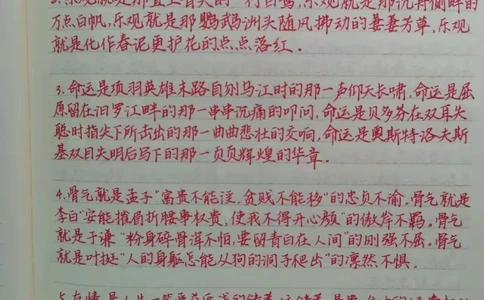 万点白帆，乐观就是那鹦鹉洲头随风拂动的萋萋芳草，乐观
就是化作春泥更护花的点点落红。
3.命运是项羽英雄末路自刎乌江时的那一声仰天长啸，命运是屈
原留在汨罗江畔的那一串串沉痛的叩问，命运是贝多芬在双耳失
聪时指尖下所击出的那一曲曲悲壮的交响，命运是奥斯特洛夫斯
基双目失明后写下的那一页页辉煌的华章。
4.骨气就是孟子“富贵不能淫，贫贱不能移”的忠贞不渝，骨气就是
李白“安能摧眉折腰事权贵，使我不得开心颜”的傲岸不羁，骨气
就是于谦“粉身碎骨浑不怕，要留青白在人间”的刚强不屈，骨气
就是叶挺“人的身躯怎能从狗的洞子爬出”的凛然不惧。